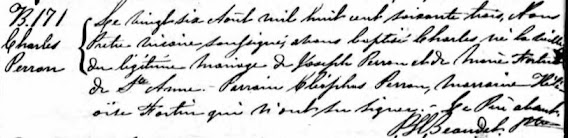 B. 171
Charles
Perron
Le vingt six Août mil huit cent soixante trois, Nous
Prêtre vicaire soussigné, avons baptisé Charles né la veille
du légitime mariage de Joseph Perron et de Marie Fortin
de Ste Anne. Parrain Cléophas Perron, marraine Hél-
oïse Fortin qui n'ont su signer. Le Père absent.
Beaudet Ptre